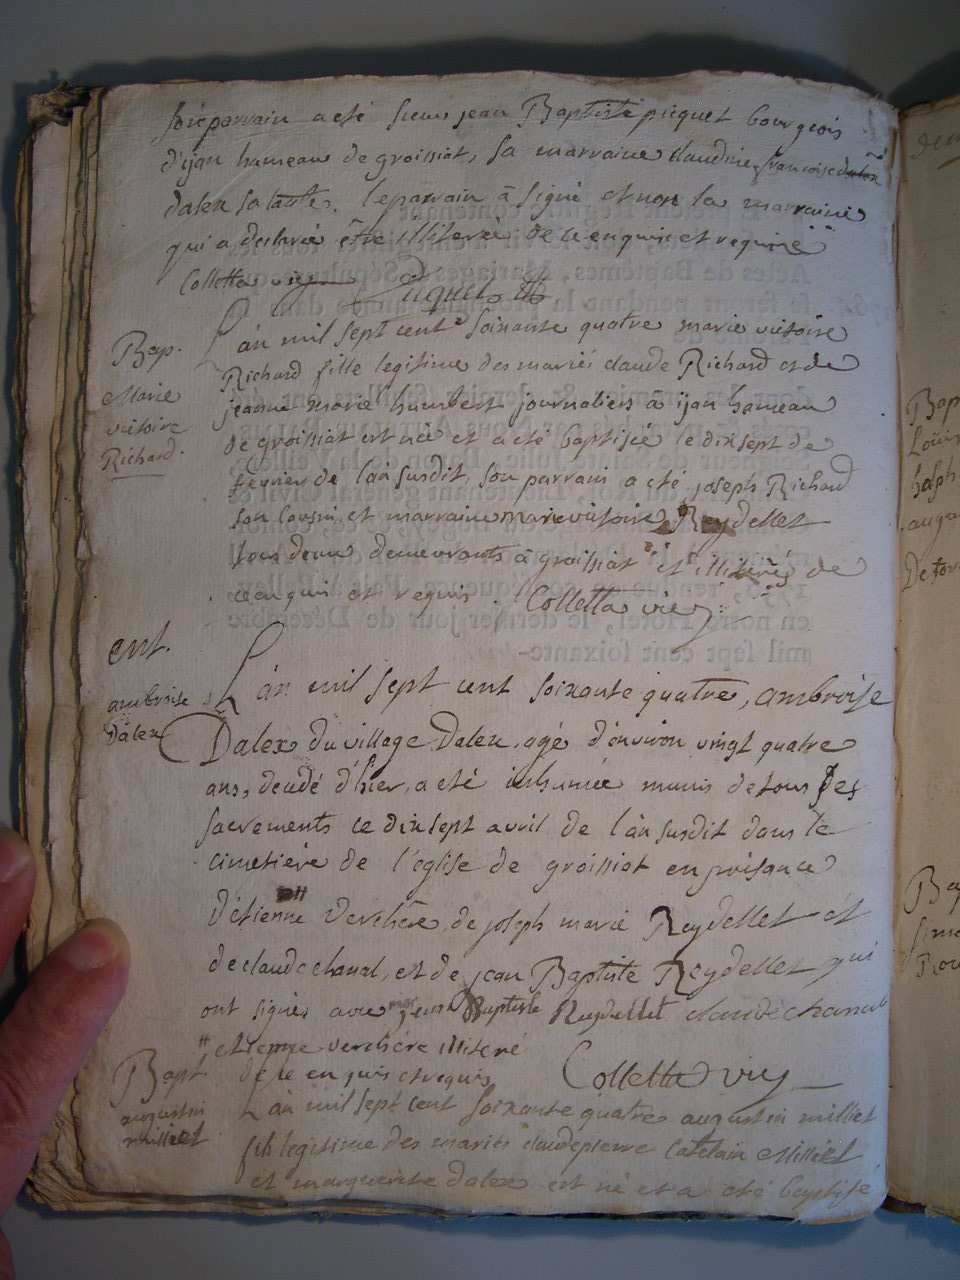 son parrain a eté sieur jean Baptiste picquet bourgeois
d'ijan hameau de groissiat, sa marraine claudine francoise
dalex sa tante. le parrain à signé et non la marraine
qui a declarée être illiterée de ce enquise et requise
Colletta vic picquet
L'án mil sept cent soixante quatre marie victoire
Bap.
Marie
victoire
Richard.
Richard fille legitime des mariés claude Richard et de
jeanne marie humbert journaliers à ijan hameau
de groissiat est née et a eté baptisée le dix sept de
fevrier de l'án susdit, son parrain a eté joseph Richard
son cousin et marraine marie victoire Reydellet
tous deux demeurants à groissiat et illiterés de
ce enquis et requis. Colletta vic
ent.
ambroise
Dalex
L'án mil sept cent soixante quatre, ambroise
Dalex du village Dalex, agé d'environ vingt quatre
ans, decedé d'hier, a eté inhumée munis de tous ses
sacrements ce dix sept avril de l'àn susdit dans le
cimetiére de l'eglise de groissiat en presance
d'étienne verchére, de joseph marie Reydellet et
de claude chanal, et de jean Baptiste Reydellet qui
ont signés avec moy jean Baptiste Reydellet claude chanal
# etienne verchére illiteré
de ce enquis et requis Colletta vic
Bapt
augustin
milliet
L'án mil sept cent soixante quatre augustin milliet
fils legitime des mariés claude pierre Catelain Milliet
et marguerite dalex est né et a eté baptisé
den
Bap
Louis
Ba